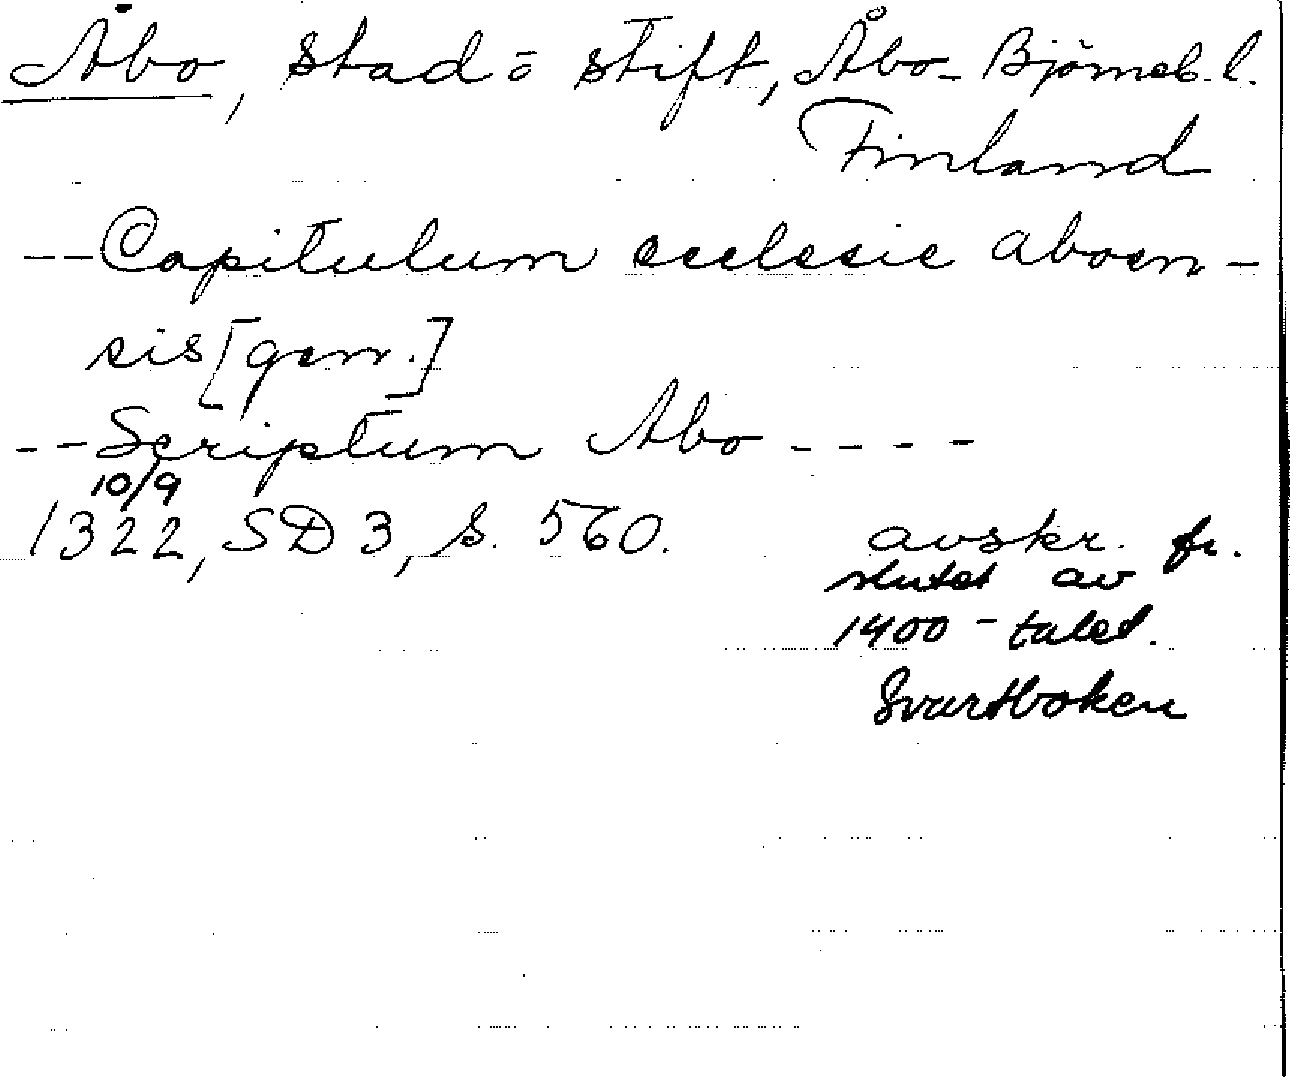 Åbo, stad o stift, Åbo-Björneb. l.
Finland
-- Capitulum ecclesie aboen-
sis [gen.]
-- Scriptum Abo ----
10/9
1322, SD 3, s. 560. avskr. fr.
slutet av
1400-talet.
Svartboken